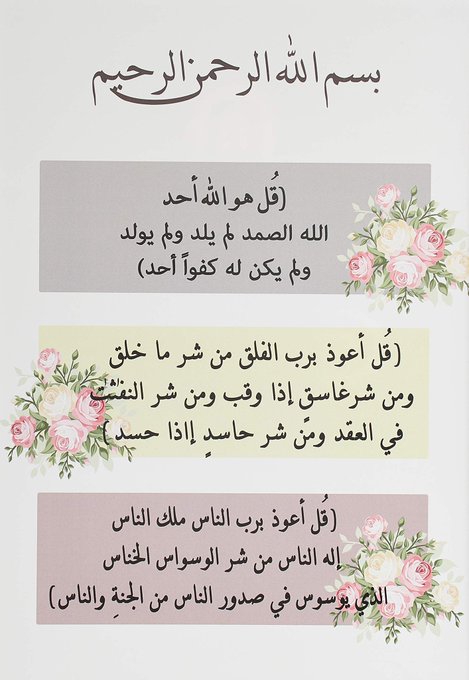 بسم الله الرحمن الرحيم
(قُل هو الله أحد
الله الصمد لم يلد ولم يولد
ولم يكن له كفواً أحد)
(قُل أعوذ برب الفلق من شر ما خلق
ومن شرغاسقٍ إذا وقب ومن شر النفثت
في العقد ومن شر حاسدٍ إاذا حسد)
(قُل أعوذ برب الناس ملك الناس
إله الناس من شر الوسواس الخناس
الذي يوسوس في صدور الناس من الجنةِ والناس)